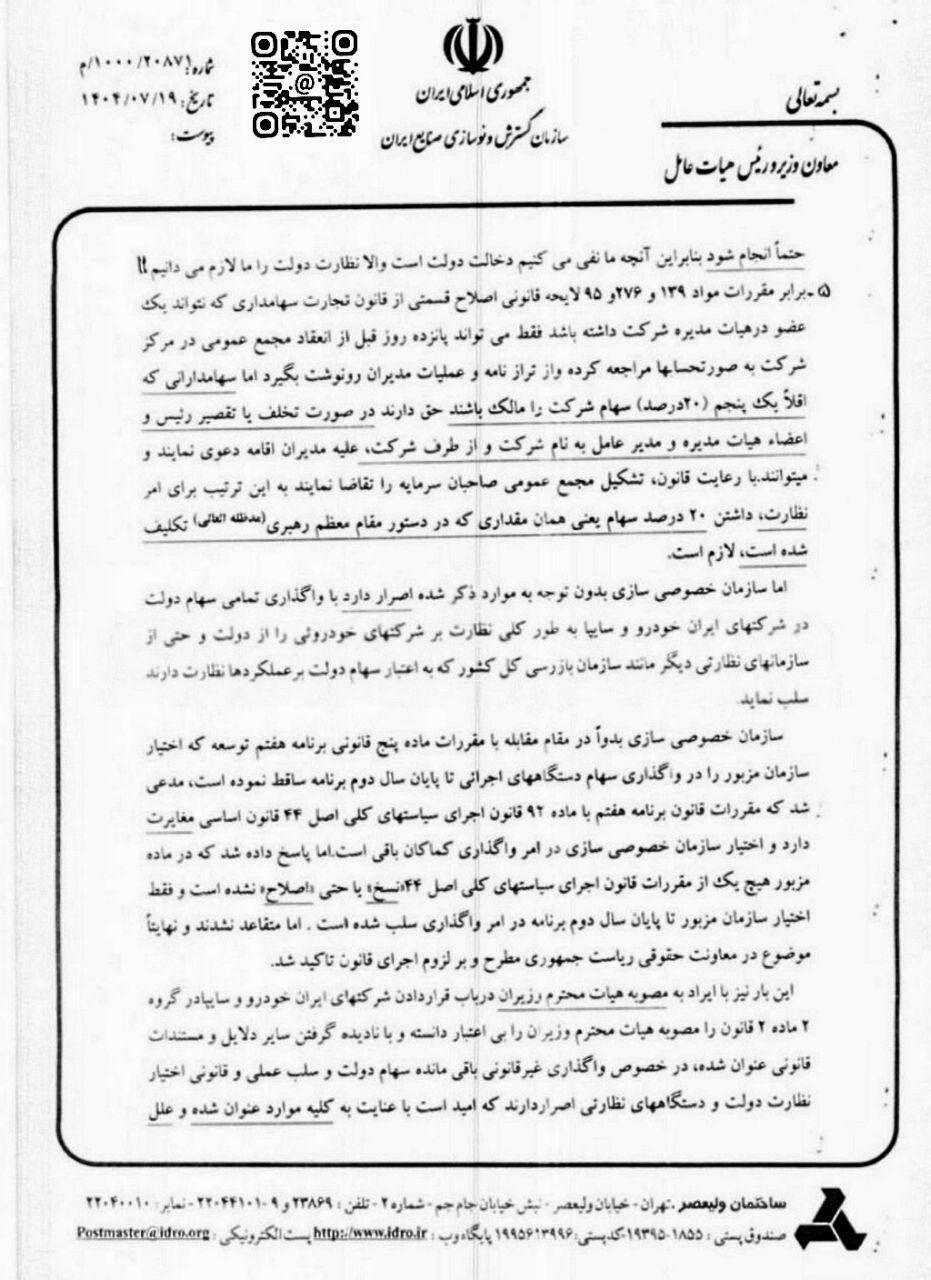 بسمه تعالی
جمهوری اسلامی ایران
سازمان گسترش و نوسازی صنایع ایران
معاون وزیر و رئیس هیات عامل
شماره: ۱۰۰۰/۲۰۸۷۱/م
تاریخ: ۱۴۰۴/۰۷/۱۹
پیوست:
حتماً انجام شود بنابراین آنچه ما نفی می کنیم دخالت دولت است والا نظارت دولت را ما لازم می دانیم!!
۵-برابر مقررات مواد ۱۳۹ و ۲۷۶و ۹۵ لایحه قانونی اصلاح قسمتی از قانون تجارت سهامداری که نتواند یک
عضو درهیات مدیره شرکت داشته باشد فقط می تواند پانزده روز قبل از انعقاد مجمع عمومی در مرکز
شرکت به صورتحسابها مراجعه کرده واز تراز نامه و عملیات مدیران رونوشت بگیرد اما سهامدارانی که
اقلاً یک پنجم (۲۰درصد) سهام شرکت را مالک باشند حق دارند در صورت تخلف یا تقصیر رئیس و
اعضاء هیات مدیره و مدیر عامل به نام شرکت و از طرف شرکت، علیه مدیران اقامه دعوی نمایند و
میتوانند.با رعایت قانون، تشکیل مجمع عمومی صاحبان سرمایه را تقاضا نمایند به این ترتیب برای امر
نظارت، داشتن ۲۰ درصد سهام یعنی همان مقداری که در دستور مقام معظم رهبری(مدظله العالی) تکلیف
شده است، لازم است.
اما سازمان خصوصی سازی بدون توجه به موارد ذکر شده اصرار دارد با واگذاری تمامی سهام دولت
در شرکتهای ایران خودرو و سایپا به طور کلی نظارت بر شرکتهای خودروئی را از دولت و حتی از
سازمانهای نظارتی دیگر مانند سازمان بازرسی کل کشور که به اعتبار سهام دولت برعملکردها نظارت دارند
سلب نماید.
سازمان خصوصی سازی بدواً در مقام مقابله با مقررات ماده پنج قانونی برنامه هفتم توسعه که اختیار
سازمان مزبور را در واگذاری سهام دستگاههای اجرائی تا پایان سال دوم برنامه ساقط نموده است، مدعی
شد که مقررات قانون برنامه هفتم با ماده ۹۲ قانون اجرای سیاستهای کلی اصل ۴۴ قانون اساسی مغایرت
دارد و اختیار سازمان خصوصی سازی در امر واگذاری کماکان باقی است.اما پاسخ داده شد که در ماده
مزبور هیچ یک از مقررات قانون اجرای سیاستهای کلی اصل ۴۴«نسخ» یا حتی «اصلاح» نشده است و فقط
اختیار سازمان مزبور تا پایان سال دوم برنامه در امر واگذاری سلب شده است . اما متقاعد نشدند و نهایتاً
موضوع در معاونت حقوقی ریاست جمهوری مطرح و بر لزوم اجرای قانون تاکید شد.
این بار نیز با ایراد به مصوبه هیات محترم وزیران درباب قراردادن شرکتهای ایران خودرو و سایپادر گروه
۲ ماده ۲ قانون را مصوبه هیات محترم وزیران را بی اعتبار دانسته و با نادیده گرفتن سایر دلایل و مستندات
قانونی عنوان شده، در خصوص واگذاری غیرقانونی باقی مانده سهام دولت و سلب عملی و قانونی اختیار
نظارت دولت و دستگاههای نظارتی اصراردارند که امید است با عنایت به کلیه موارد عنوان شده و علل
ساختمان ولیعصر .تهران - خیابان ولیعصر - نبش خیابان جام جم - شماره ۲ - تلفن : ۲۳۸۶۹ و ۹-۲۲۰۴۴۱۰۱ - نمابر : ۲۲۰۴۰۰۱۰
صندوق پستی : ۱۸۵۵-۱۹۳۹۵-کدپستی: ۱۹۹۵۶۱۳۹۹۶ پایگاه وب : http://www.idro.ir پست الکترونیکی : Postmaster@idro.org